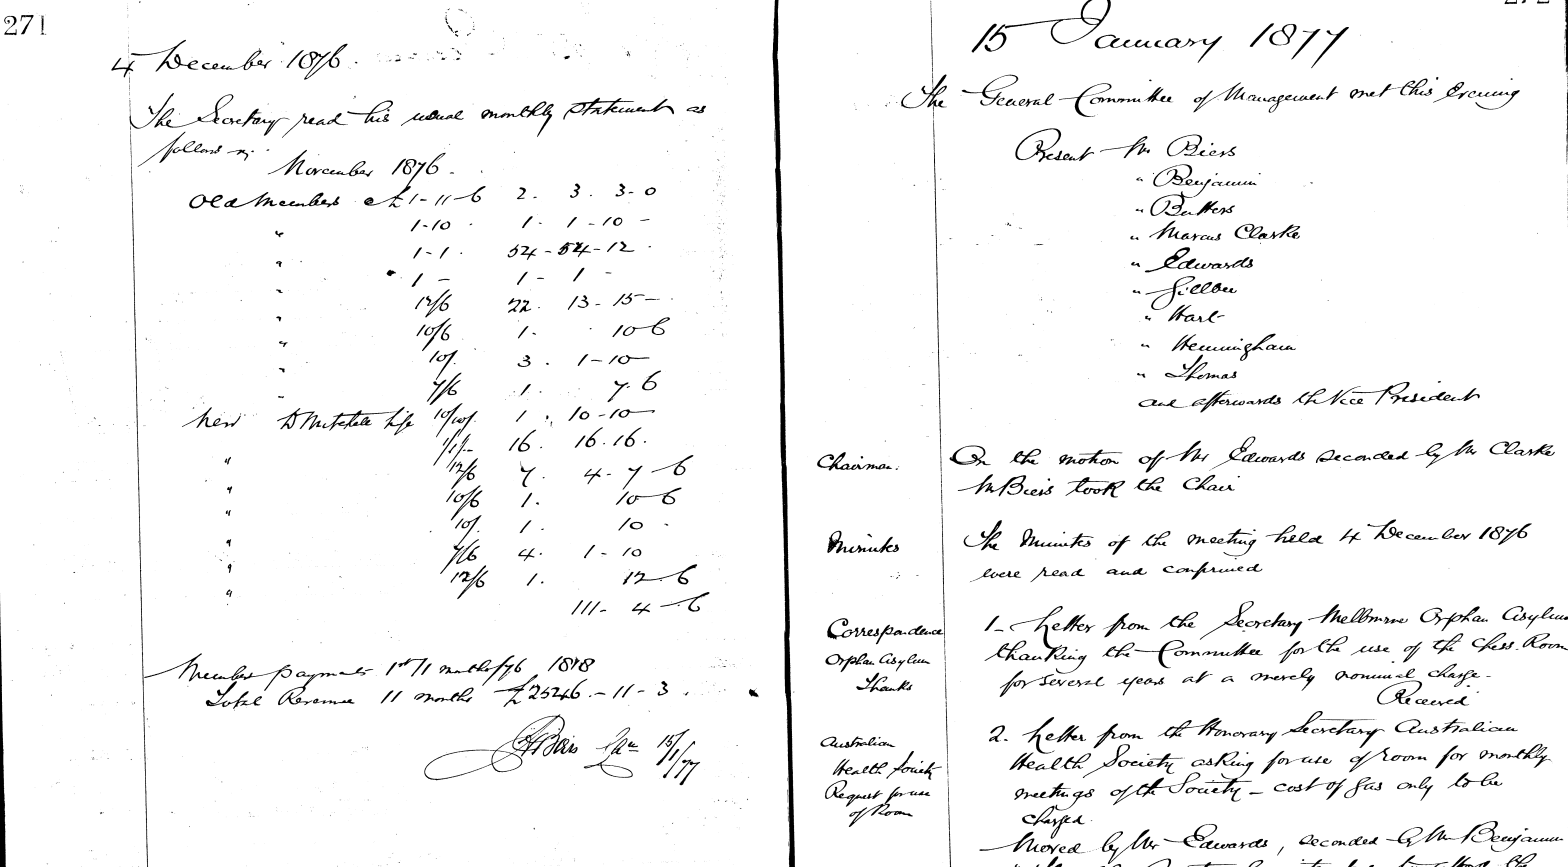 271
4 December 1876.
The Secretary read his usual monthly statement as
follows viz.
November 1876.
Old Members at £1-11-6 2. 3. 3-0
" 1-10 . 1. 1-10 -
" 1-1. 54-54-12.
" 1 - 1- 1 -
" 12/6 22. 13-15-
" 10/6 1. 10 6
" 10/. 3. 1-10
" 7/6 1. 7.6
New 10/10/. 1. 10-10
1/1/- 16. 16.16.
" 12/6 7. 4-7-6
" 10/6 1. 10-6
" 10/. 1. 10 -
" 7/6 4. 1-10
" 12/6 1. 12.6
" 111-4-6
Member payments 1st 11 months/76 1878
Total Revenue 11 months £2546.-11-3.
15/1/77
15 January 1877
The General Committee of Management met this Evening
Present Mr Biers
" Benjamin
" Butters
" Marcus Clarke
" Edwards
" Gillbee
" Hart
" Henningham
" Thomas
and afterwards the Vice President
Chairman. On the motion of Mr Edwards seconded by Mr Clarke
Mr Biers took the Chair
Minutes The Minutes of the meeting held 4 December 1876
were read and confirmed
Correspondence 1- Letter from the Secretary Melbourne Orphan Asylum
Orphan Asylum thanking the Committee for the use of the Chess Room
Thanks for several years at a merely nominal charge-
Received
Australian 2. Letter from the Honorary Secretary Australian
Health Society Health Society asking for use of room for monthly
Request for use meetings of the Society - cost of gas only to be
of Room charged.
Moved by Mr Edwards, seconded by Mr Benjamin